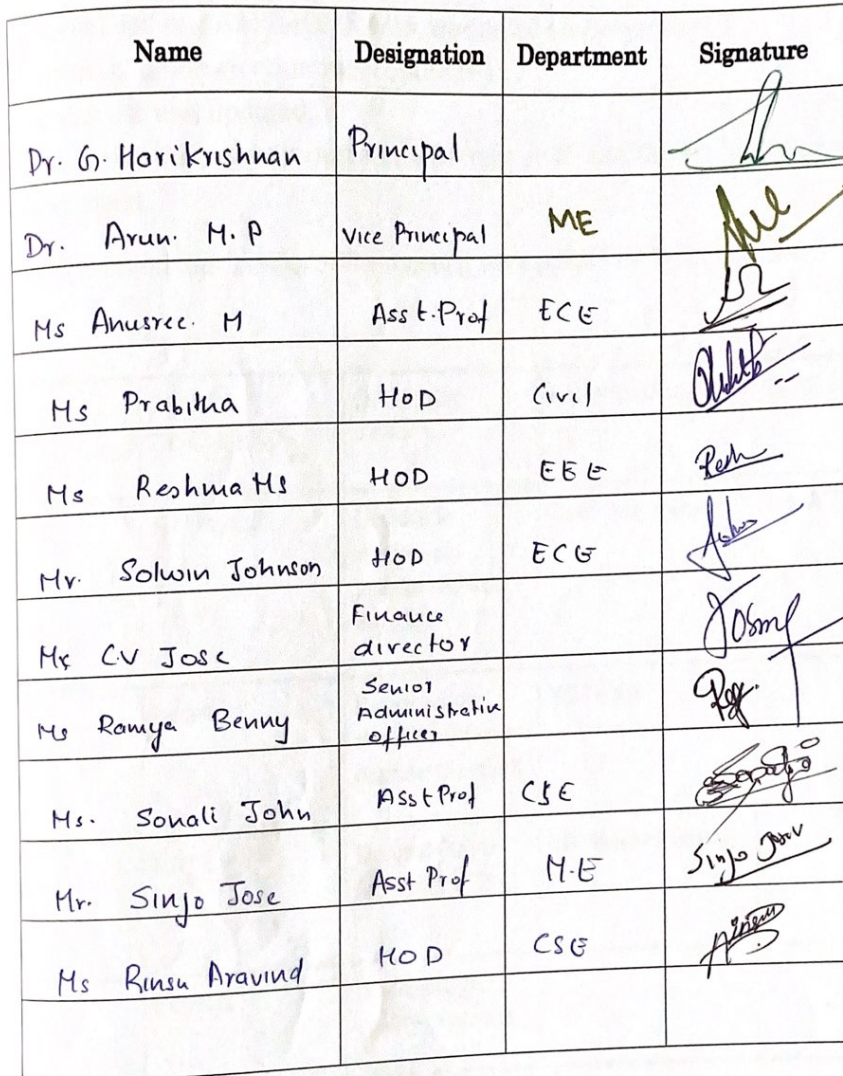 Name Designation Department Signature
Dr. G. Harikrishnan Principal
Dr. Arun. M.P Vice Principal ME
Ms Anusree. M Asst.Prof ECE
Ms Prabitha HOD Civil
Ms Reshma Ms HOD EEE
Mr. Solwin Johnson HOD ECE
Finance
Mr CV Jose director
Senior
Ms Ramya Benny Administrative
officer
Ms. Sonali John Asst Prof CSE
Mr. Sinjo Jose Asst Prof M.E Sinjo Jose
Ms Rinsu Aravind HOD CSE